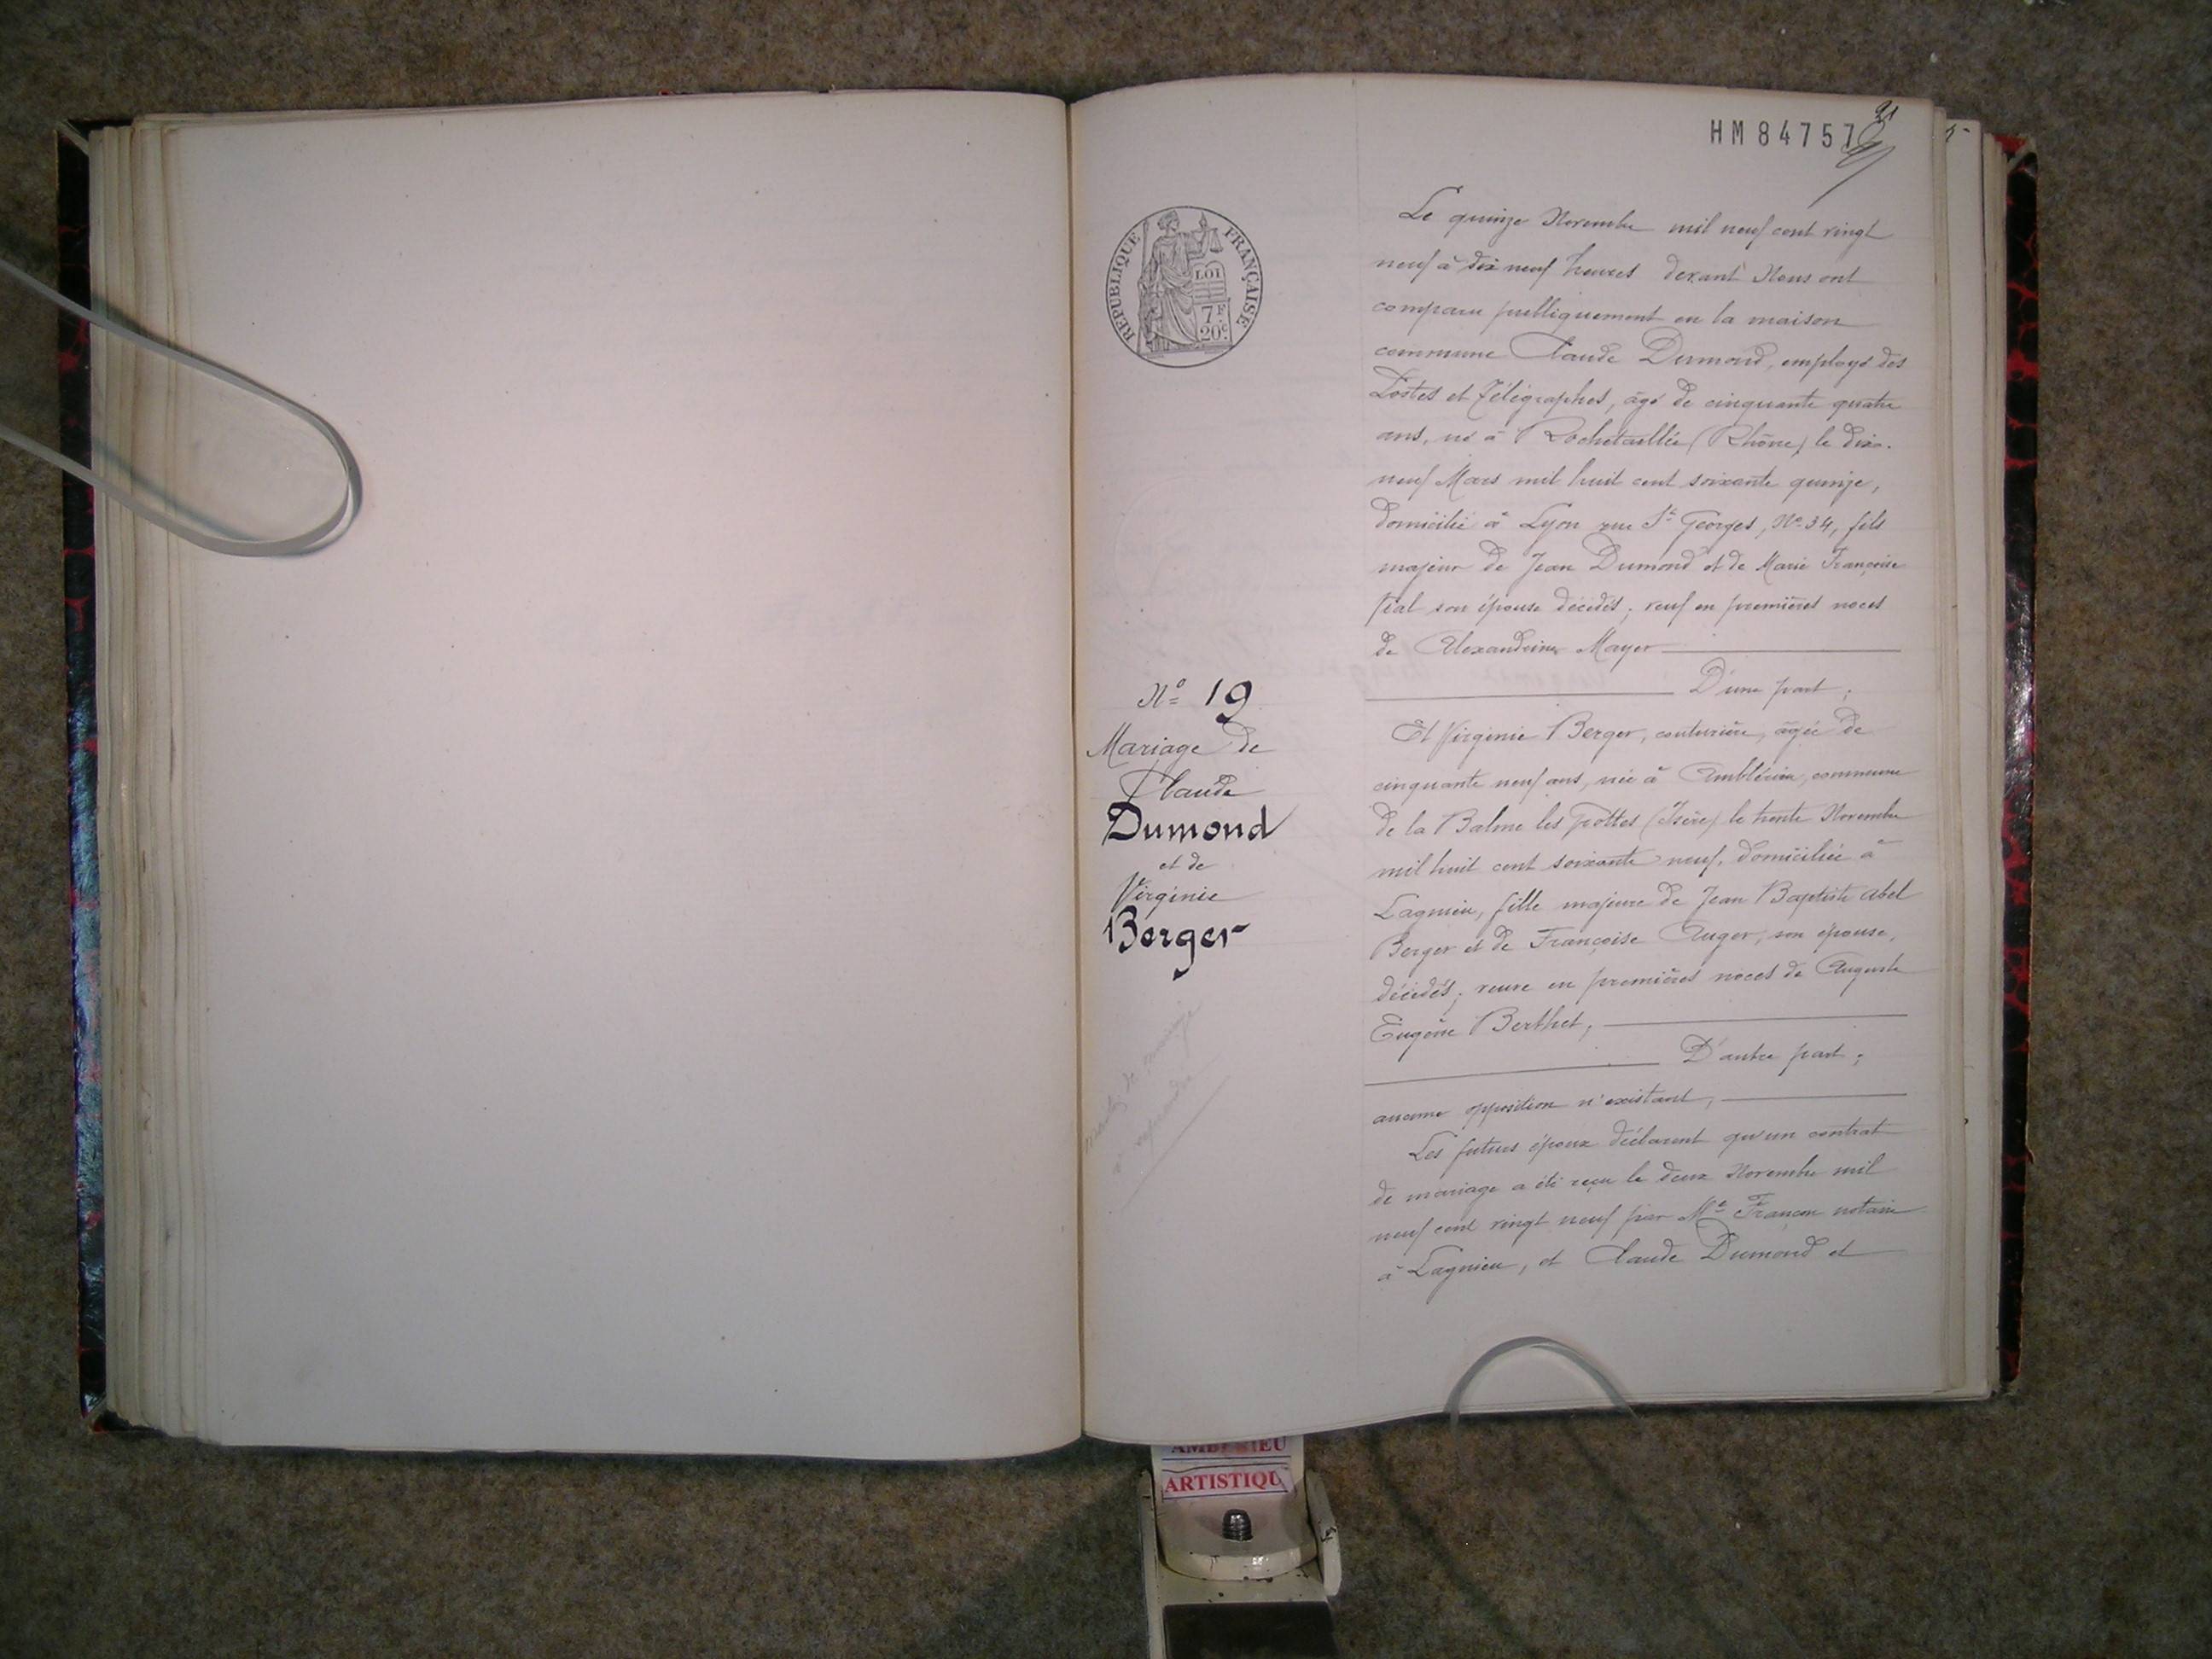 HM 84757
REPUBLIQUE FRANÇAISE
LOI
7F
20c.
N° 19
Mariage de
Claude
Dumond
et de
Virginie
Berger
Le quinze Novembre mil neuf cent vingt
neuf à dix neuf heures devant Nous ont
comparu publiquement en la maison
commune Claude Dumond, employé des
Postes et Télégraphes, âgé de cinquante quatre
ans, né à Rochetaillée (Rhône) le dix-
neuf Mars mil huit cent soixante quinze,
domicilié à Lyon rue St Georges, N° 34, fils
majeur de Jean Dumond et de Marie Françoise
son épouse décédés; veuf en premières noces
de Alexandrine Mayer
D'une part;
Et Virginie Berger, couturière, âgée de
cinquante neuf ans, née à Amblérieu, commune
de la Balme les Grottes (Isère) le trente Novembre
mil huit cent soixante neuf, domiciliée à
Lagnieu, fille majeure de Jean Baptiste Abel
Berger et de Françoise Auger, son épouse,
décédés; veuve en premières noces de Auguste
Eugène Berthet,
D'autre part;
aucune opposition n'existant,
Les futurs époux déclarent qu'un contrat
de mariage a été reçu le deux Novembre mil
neuf cent vingt neuf par Me Françon notaire
à Lagnieu, et Claude Dumond et
ARTISTIQU